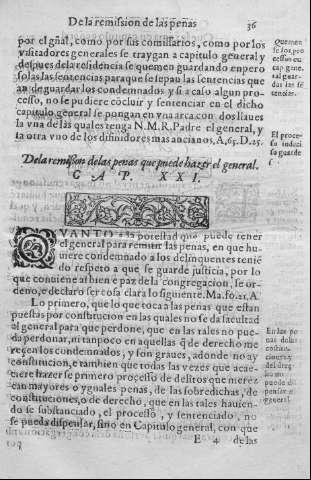 De la remission de las penas 36
por el gñal, como por sus comissarios, como por los
visitadores generales se traygan a capitulo general y
despues de la residencia se quemen guardando enpero
solas las sentencias para que se sepan las sentencias que
an de guardar los condemnados y si a caso algun pro-
cesso, no se pudiere cõcluir y sentenciar en el dicho
capitulo general se pongan en vna arca con dos llaues
la vna de las quales tenga N.M.R. Padre el general, y
la otra vno de los difinidores mas ancianos, A, 65. D. 25.
Quemen
se los pro
cessos en
cap gene
ral guar-
das las sẽ
tencias.
El proce-
so indeci
so guarde
De la remission de las penas que puede hazer el general.
CAP. XXI.
QVANTO a la potestad que puede tener
el general para remitir las penas, en que hu-
uiere condemnado a los delinquentes teniẽ
do respeto a que se guarde justicia, por lo
que conuiene al bien e paz de la congregacion, se or-
deno, e declaro ser cosa clara lo siguiente. Ma. fo. 21. A
Lo primero, que lo que toca a las penas que estan
puestas por constitucion en las quales no se da facultad
al general para que perdone, que en las tales no pue-
da perdonar, ni tanpoco en aquellas q̃ de derecho me
reçen los condemnados, y son graues, adonde no ay
constitucion, e tambien que todas las vezes que acae-
ciere hazer se primero processo de delitos que merez
can mayores o yguales penas, de las sobredichas, de
constituciones, o de derecho, que en las tales hauien-
do se substanciado, el processo, y sentenciado, no
se pueda dispensar, sino en Capitulo general, con que
En las pe
nas de las
del dere
cho no
puede dis
pensar el
general.
E 4 de las